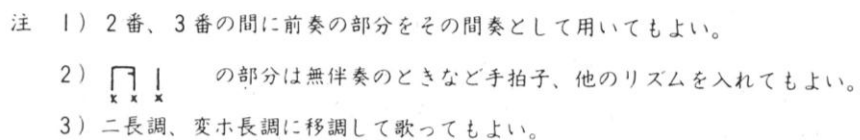 注 1) 2番、3番の間に前奏の部分をその間奏として用いてもよい。
2) の部分は無伴奏のときなど手拍子、他のリズムを入れてもよい。
3) ニ長調、変ホ長調に移調して歌ってもよい。